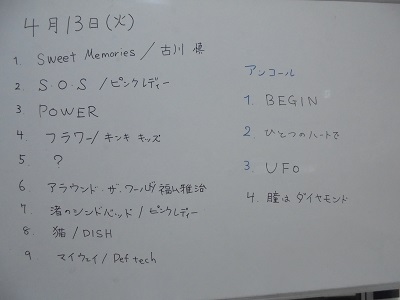 4月13日(火)
1. Sweet Memories / 古川
2. S・O・S / ピンクレディー
3 POWER
4 フラワー / キンキ キッズ
5 ?
6. アラウンド・ザ・ワールド / 福山雅治
7. 渚のシンドバッド / ピンクレディー
8. 猫 / DISH
9 マイウェイ / Def tech
アンコール
1. BEGIN
2. ひとつのハートで
3. UFO
4. 瞳はダイヤモンド